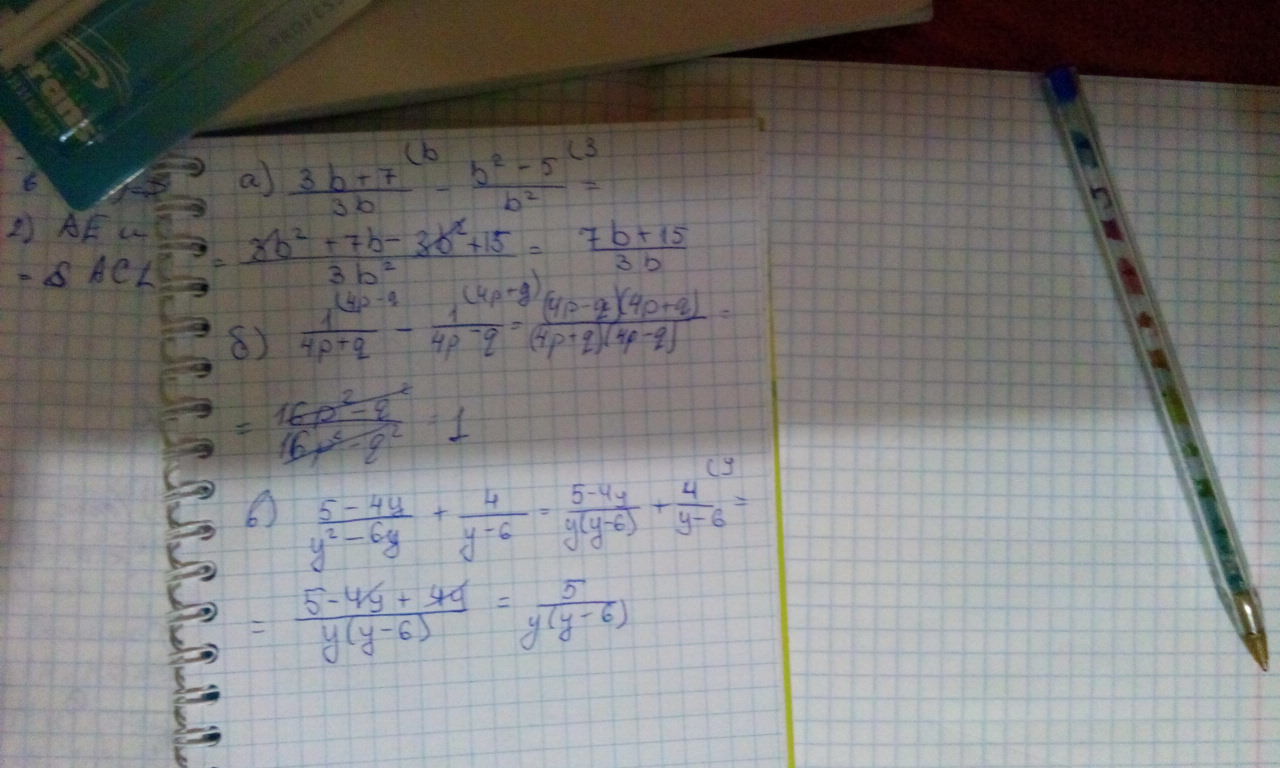 PROFESS
2) AE и
= S ACL
а) (3b+7)/(3b) (b - (b² - 5)/(b²) (3 =
= (3b² + 7b - 3b² + 15)/(3b²) = (7b + 15)/(3b)
б) 1/(4p+q) (4p-q - 1/(4p-q) (4p+q) = (4p-q)(4p+q)/(4p+q)(4p-q) =
= (16p² - q²)/(16p² - q²) = 1
в) (5 - 4y)/(y² - 6y) + 4/(y - 6) = (5-4y)/(y(y-6)) + 4/(y-6) (y =
= (5 - 4y + 4y)/(y(y-6)) = 5/(y(y-6))